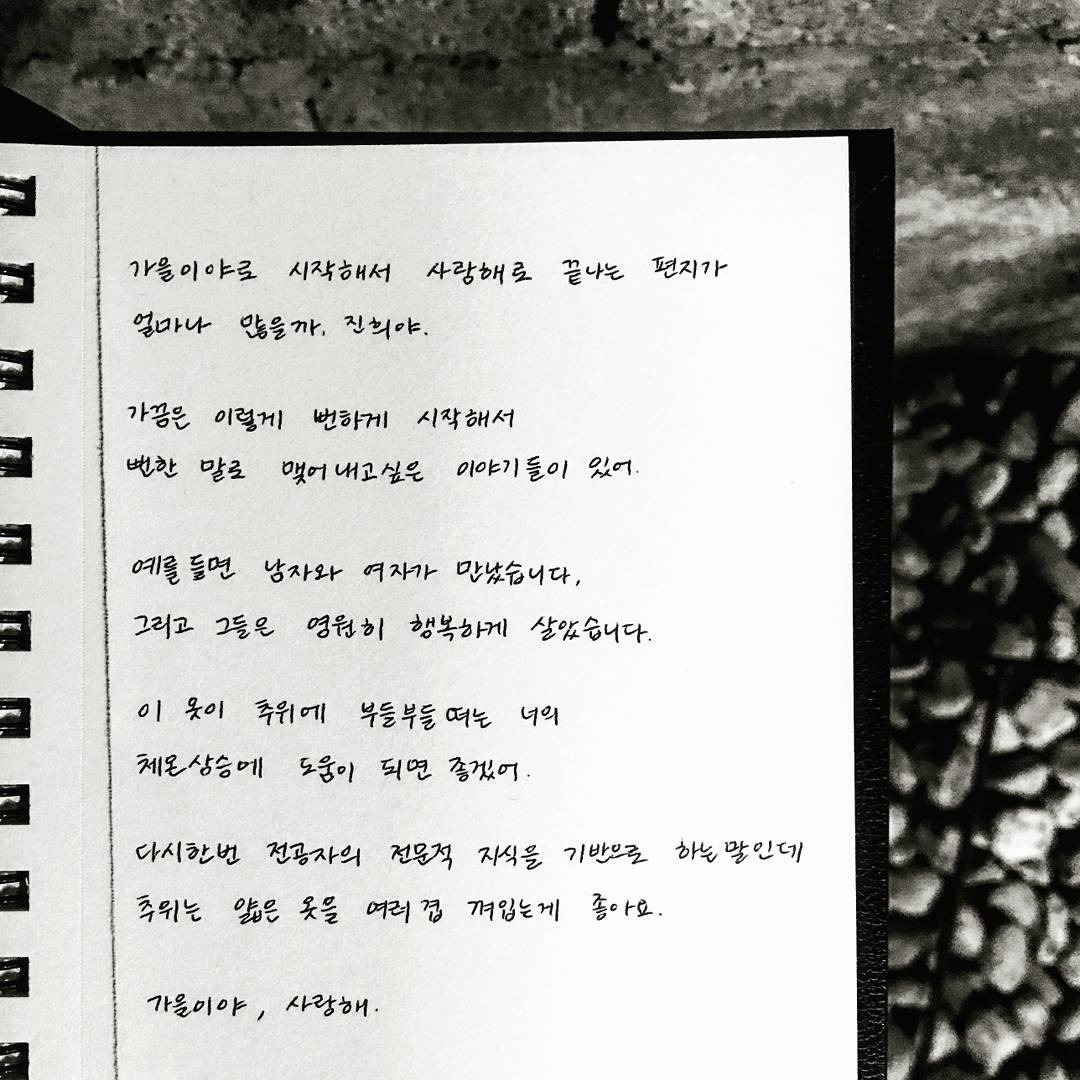 가을이야로 시작해서 사랑해로 끝나는 편지가
얼마나 많을까. 진희야.
가끔은 이렇게 뻔하게 시작해서
뻔한 말로 맺어내고싶은 이야기들이 있어.
예를들면 남자와 여자가 만났습니다,
그리고 그들은 영원히 행복하게 살았습니다.
이 옷이 추위에 부들부들떠는 너의
체온상승에 도움이 되면 좋겠어.
다시한번 전공자의 전문적 지식을 기반으로 하는말인데
추위는 얇은 옷을 여러겹 껴입는게 좋아요.
가을이야, 사랑해.